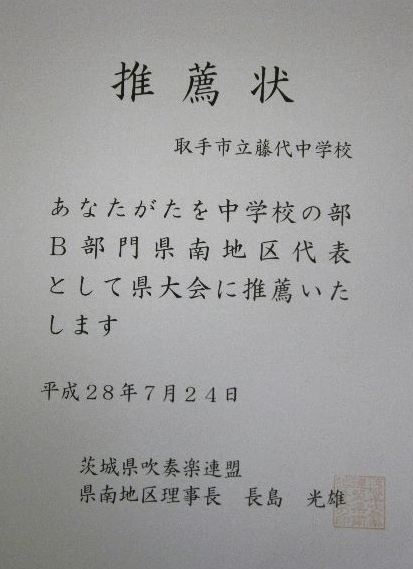 推薦状
取手市立藤代中学校
あなたがたを中学校の部
B部門県南地区代表
として県大会に推薦いた
します
平成28年7月24日
茨城県吹奏楽連盟
県南地区理事長 長島 光雄